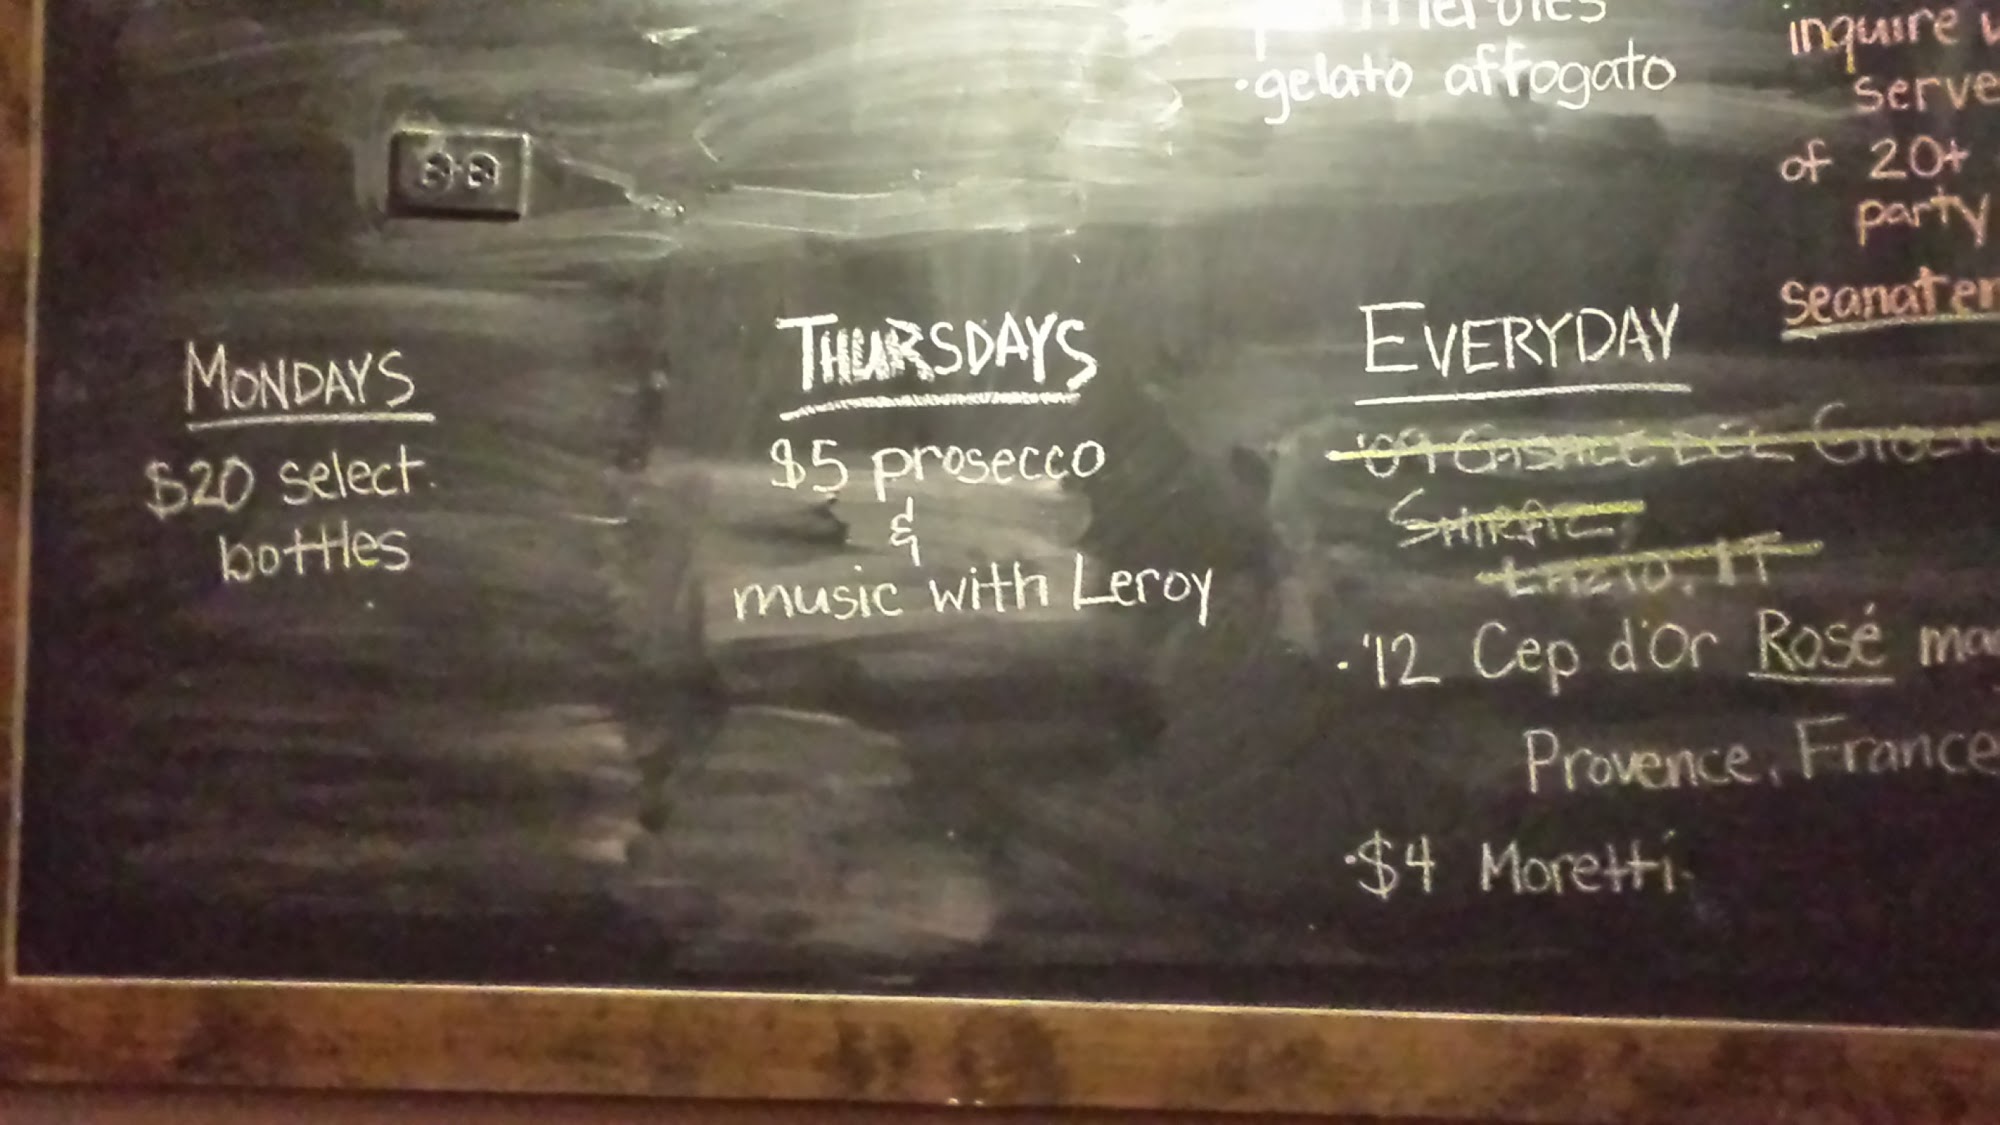 gelato affogato
inquire
serve
of 20+
party
seanater
MONDAYS
$20 select
bottles
THURSDAYS
$5 prosecco
&
music with Leroy
EVERYDAY
'09 CASALE DEL
SHIRAZ,
LAZIO, IT
·'12 Cep d'Or Rosé
Provence, France
·$4 Moretti